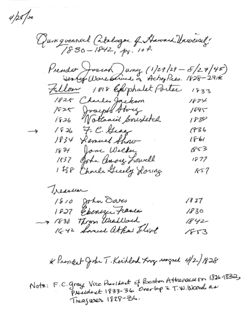 4/25/00
Quinquennial Catalogue of Harvard University
1830-1842, pp. 10ff.
President Josiah Quincy
Fellows 1818 Eliphalet Porter 1833
1825 Charles Jackson
1825 Joseph Story 1845
1826 Nathaniel Bowditch 1838
→ 1826 F.C. Gray 1836
1834 Lemuel Shaw 1861
1853
1837 John Amory Lowell 1877
Charles Greely Loring 1857
Treasurer
1810 John Davis 1827
1827 Ebenezer Francis 1830
→ 1830 Thos Wm Ward 1842
1842 Samuel Atkins Eliot 1853
* President John T. Kirkland resigned 4/2/1828
Note: F.C. Gray Vice President of Boston Athenaeum
President 1833-36. Overlap & T.W. Ward as
Treasurer 1828-36.